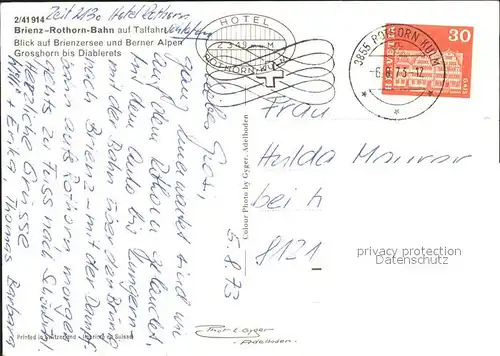 Zeit 2130 Hotel Rothorn
2/41 914
Brienz–Rothorn-Bahn auf Talfahrt
Blick auf Brienzersee und Berner Alpen
Grosshorn bis Diablerets
HOTEL
2349 M
ROTHORN-KULM
3855 ROTHORN KULM
-6. 8. 73-12
HELVETIA
30
GAIS
5.8.73
Liebes Gusti,
ganz unerwartet sind wir
auf dem Rothorn gelandet,
mit dem Auto bis Lungern,
mit der Bahn über den Brünig
nach Brienz – mit der Dampf-
bahn aufs Rothorn, morgen
gehts zu Fuss nach
Herzliche Grüsse
+ Erika, Thomas Barbara
Frau
Hulda
bei
8121
Colour Photo by Gyger, Adelboden
privacy protection
AnsichtskartenCenter
Printed in Switzerland - Imprimé en Suisse
Phot E. Gyger
Adelboden